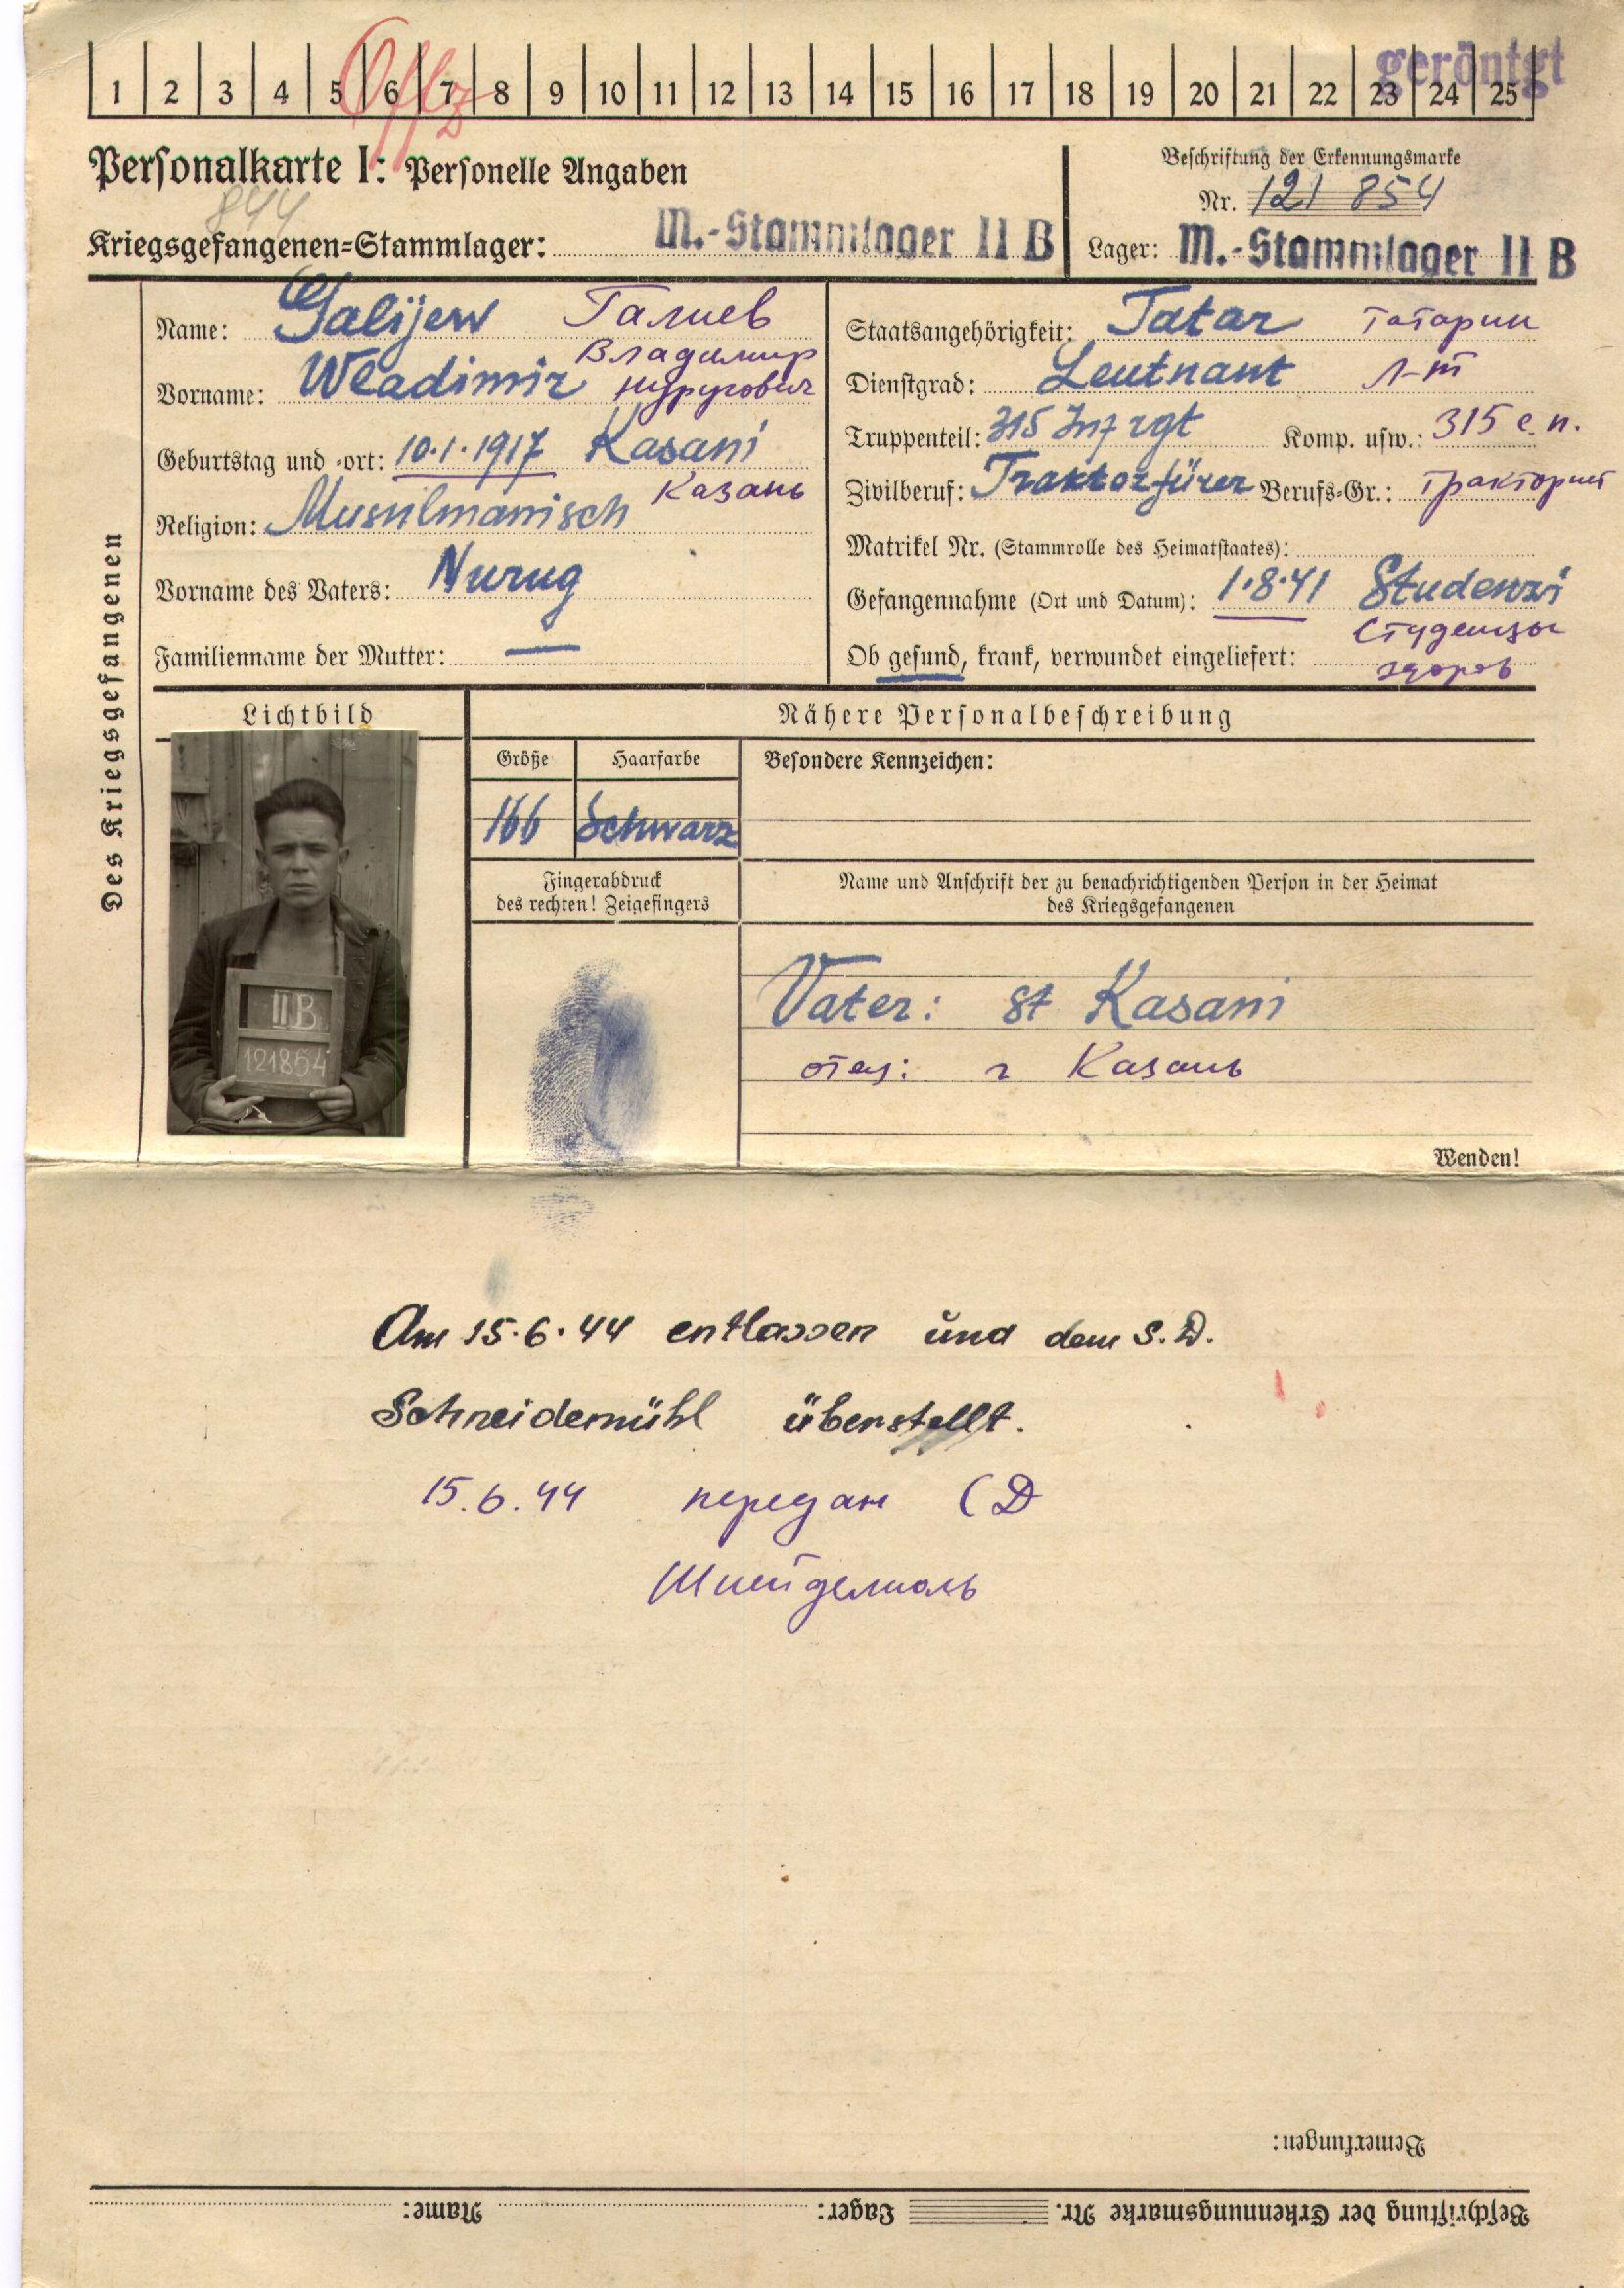 1 2 3 4 5 6 7 8 9 10 11 12 13 14 15 16 17 18 19 20 21 22 23 24 25
Offz
geröntgt
Personalkarte I: Personelle Angaben
844
Kriegsgefangenen-Stammlager: M.-Stammlager II B
Beschriftung der Erkennungsmarke
Nr. 121 854
Lager: M.-Stammlager II B
Des Kriegsgefangenen
Name: Galijew Галиев
Владимир
Vorname: Wladimir Нуругович
Geburtstag und -ort: 10.1.1917 Kasani
Казань
Religion: Musulmanisch
Vorname des Vaters: Nurug
Familienname der Mutter: —
Staatsangehörigkeit: Tatar татарин
Dienstgrad: Leutnant л-т
Truppenteil: 315 Inf rgt Komp. usw.: 315 с.п.
Zivilberuf: Traktorfürer Berufs-Gr.: тракторист
Matrikel Nr. (Stammrolle des Heimatstaates):
Gefangennahme (Ort und Datum): 1.8.41 Studenzi
Студенцы
Ob gesund, krank, verwundet eingeliefert: здоров
Lichtbild
II B
121854
Nähere Personalbeschreibung
Größe Haarfarbe Besondere Kennzeichen:
166 Schwarz
Fingerabdruck
des rechten! Zeigefingers
Name und Anschrift der zu benachrichtigenden Person in der Heimat
des Kriegsgefangenen
Vater: st Kasani
отец: г Казань
Wenden!
Am 15.6.44 entlassen und dem S.D.
Schneidemühl überstellt.
15.6.44 передан СД
Шнейдемюль
Bemerkungen:
Beschriftung der Erkennungsmarke Nr. Lager: Name: